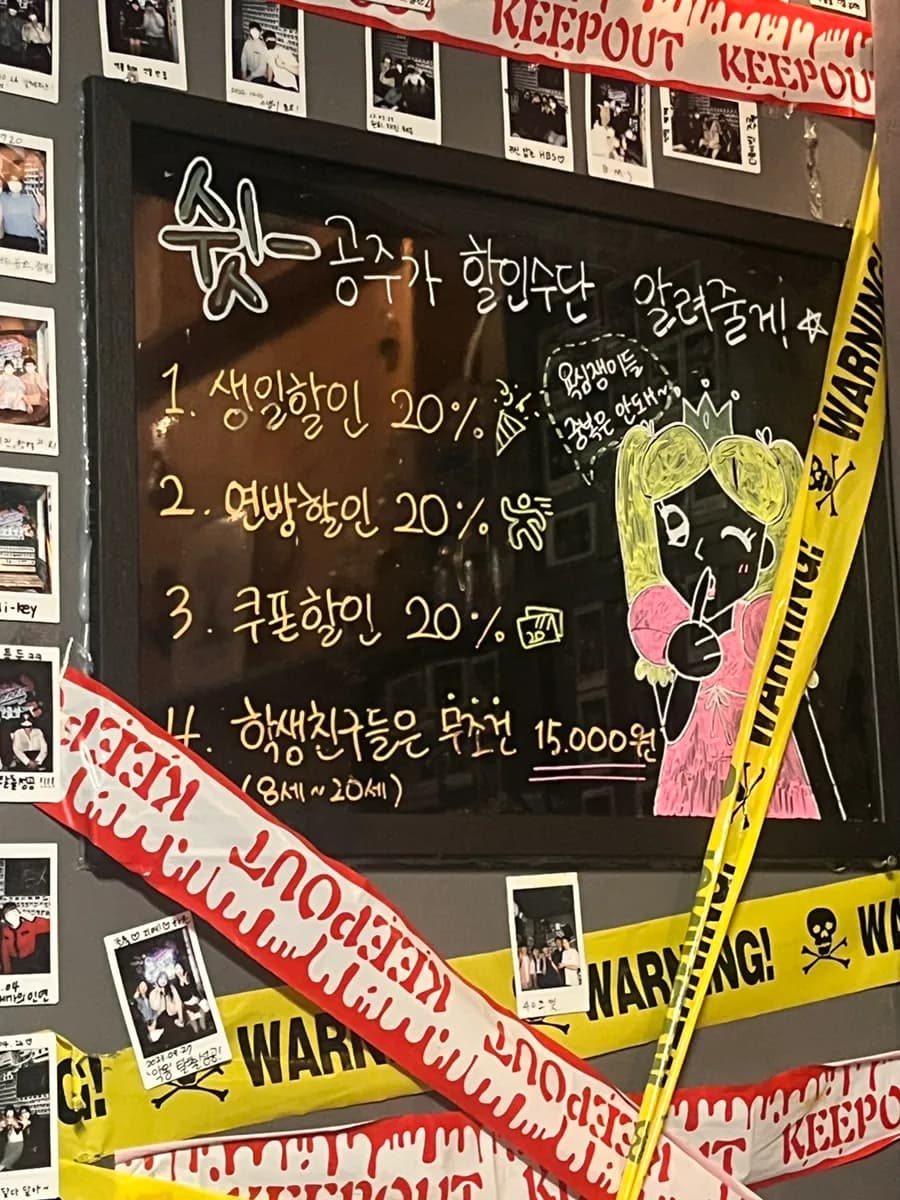 KEEPOUT KEEPOUT
HBS♡
B.M.J
쉿- 공주가 할인수단 알려줄게!
욕심쟁이들
중복은 안돼~
1. 생일할인 20%
2. 연방할인 20%
3. 쿠폰할인 20%
20
4. 학생친구들은 무조건 15.000원
(8세~20세)
WARNING!
WARNING!
WARNING!
WARNING!
i-key
KEEP
KEEPOUT
KEEPOUT
KEEPOUT
2023.09.27
탈출성공!
WARN
WARNING!
WA
NG!
KEEPOUT
KEEPOUT
KEEPO